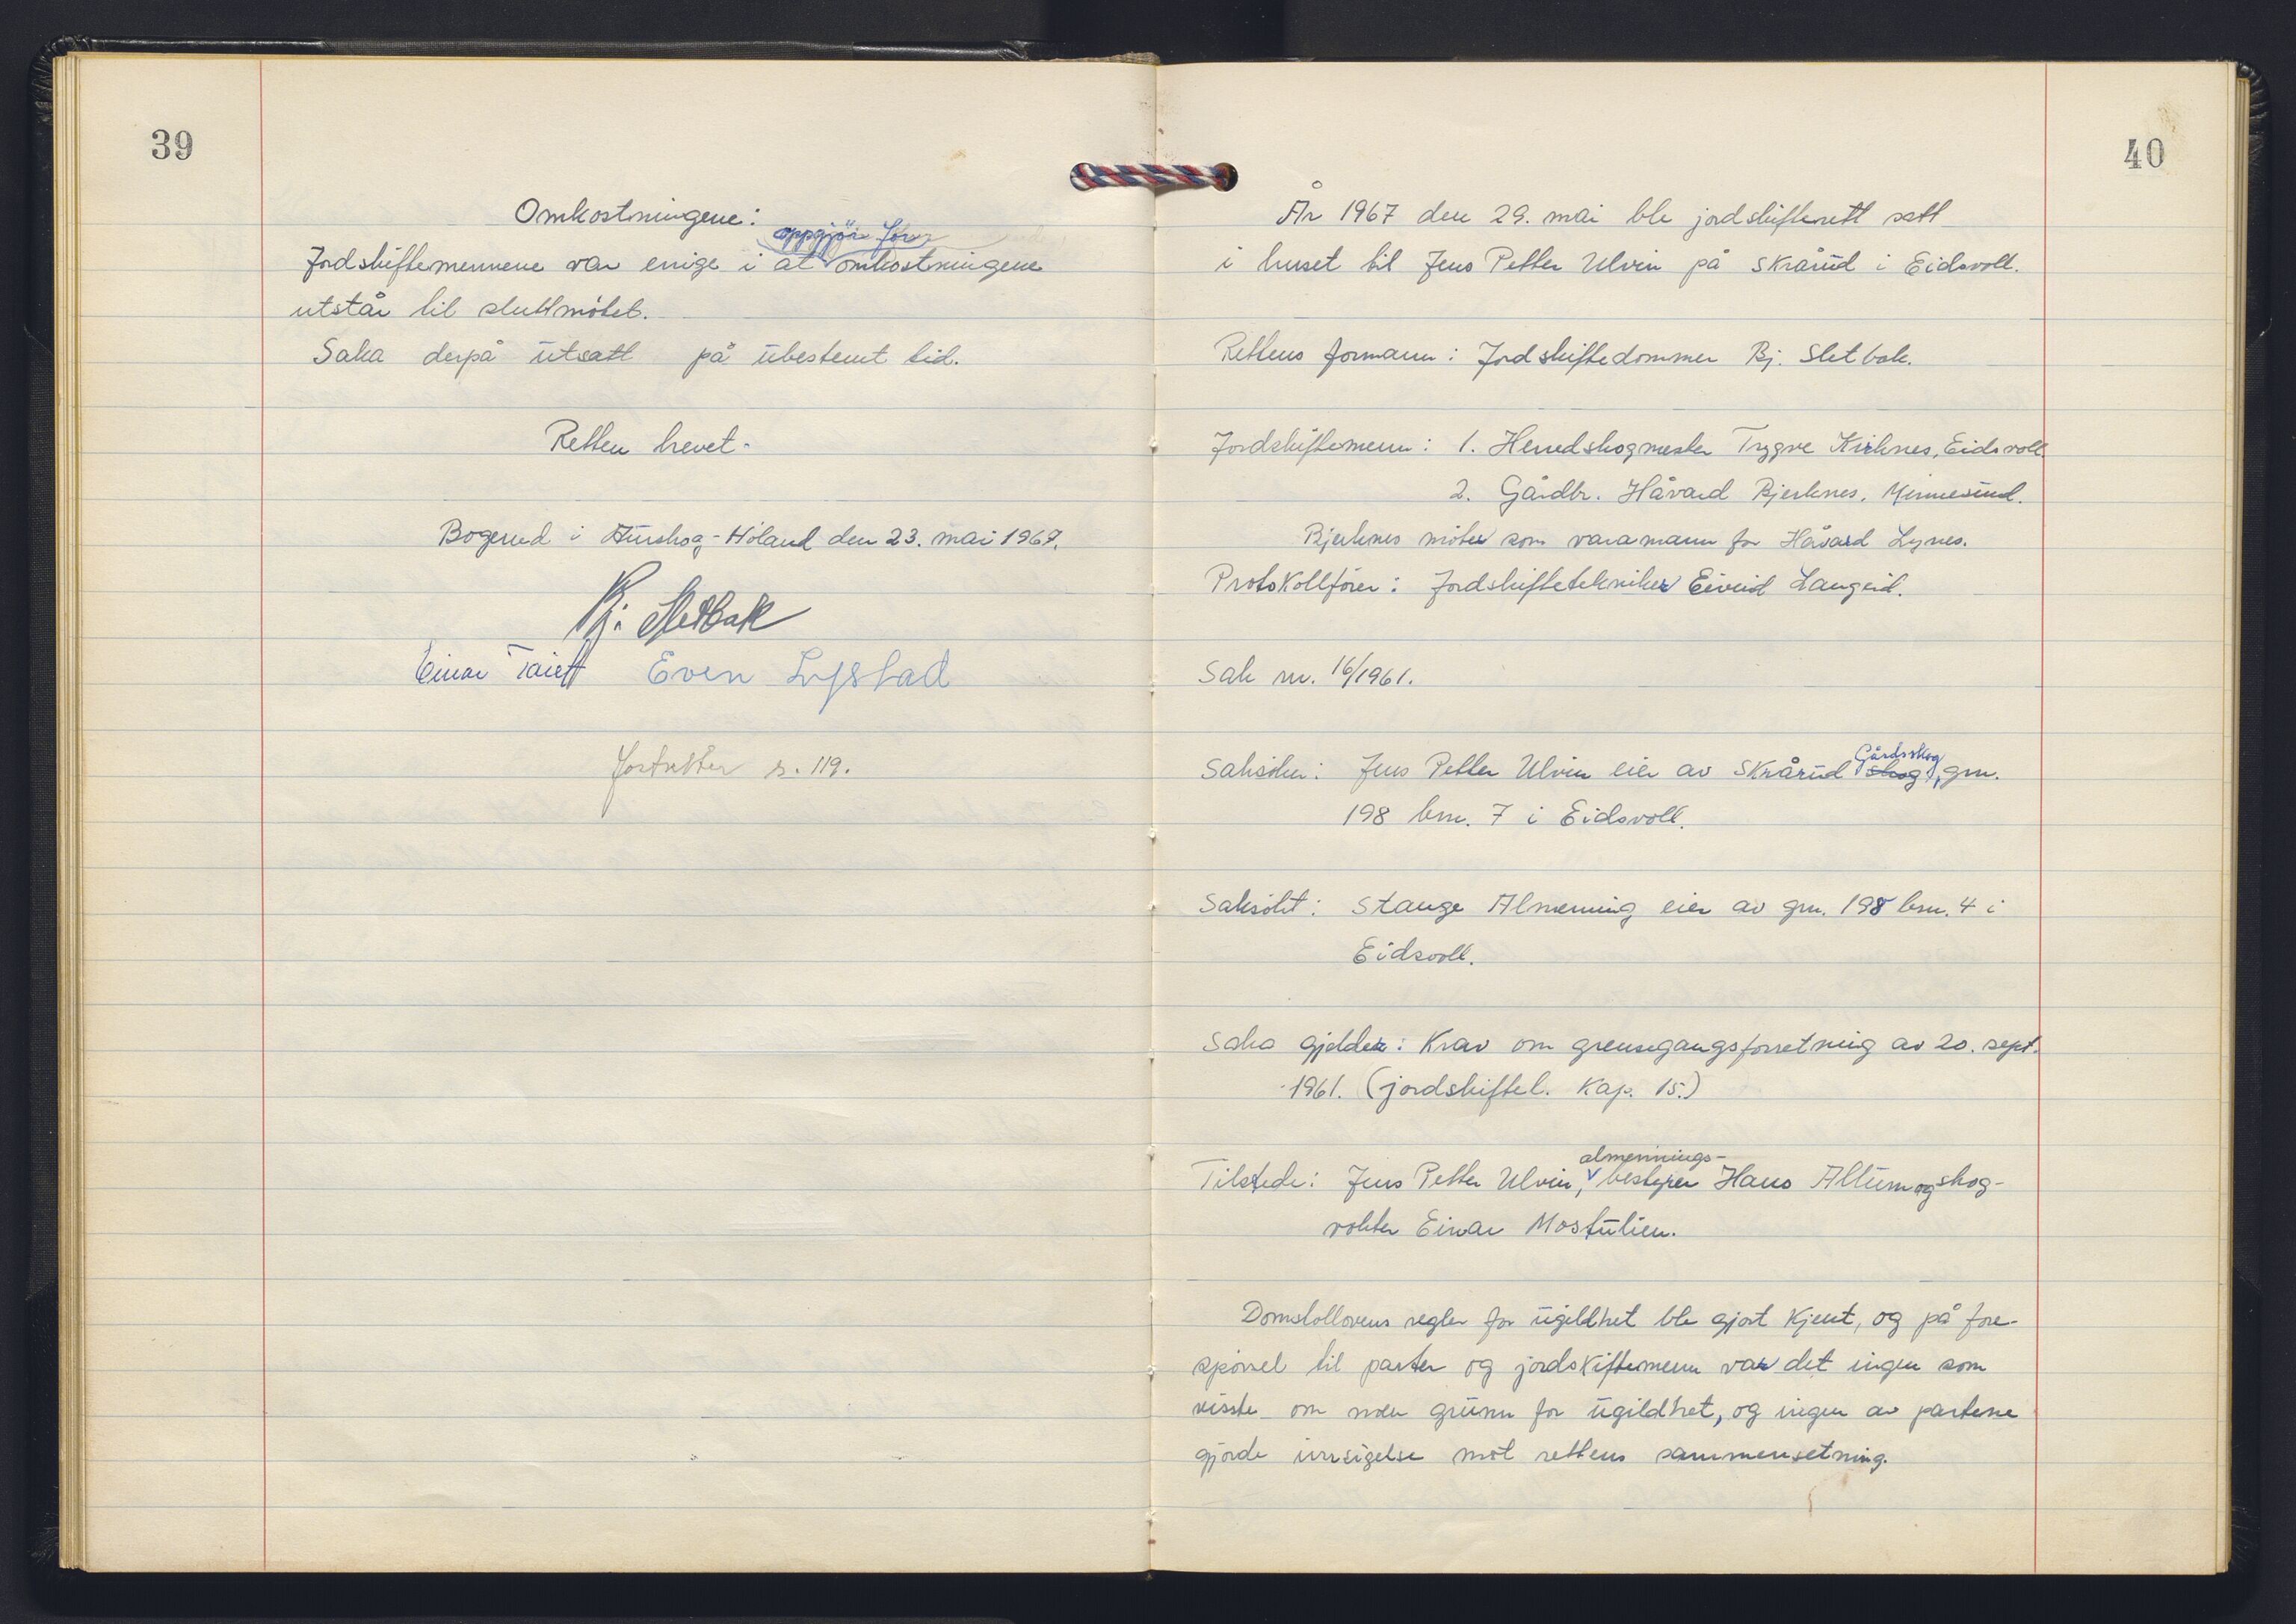 39
Omkostningene:
oppgjör for
Jordskiftemennene var enige i at omkostningene
utstår til sluttmötet.
Saka derpå utsatt på ubestemt tid.
Retten hevet.
Bogerud i Aurskog-Höland den 23. mai 1967.
Bj. Sletbak
Einar Even Lystad
Fortsetter s. 119.
40
År 1967 den 29. mai ble jordskifterett satt
i huset til Jens Petter Ulvin på Skårud i Eidsvoll.
Rettens formann: Jordskiftedommer Bj. Sletbak.
Jordskiftemenn: 1. Herredskogmester Trygve Kirknes, Eidsvoll
2. Gårdbr. Håvard Bjerknes, Minnesund.
Bjerknes möter som varamann for Håvard Lynes.
Protokollförer: Jordskiftetekniker Eivind Langeid.
Sak nr. 16/1961.
Gårdsskog
Saksöker: Jens Petter Ulvin eier av Skårud skog, gnr.
198 bnr. 7 i Eidsvoll.
Saksökt: Stange Almenning eier av gnr. 198 bnr. 4 i
Eidsvoll.
Saka gjelder: Krav om grensegangsforretning av 20. sept.
1961. (jordskiftel. kap. 15.)
almennings-
Tilstede: Jens Petter Ulvin, bestyrer Hans Alturn og skog-
vokter Einar Mostulien.
Domstollovens regler for ugildhet ble gjort kjent, og på fore-
spörsel til parter og jordskiftemenn var det ingen som
visste om noen grunn for ugildhet, og ingen av partene
gjorde innsigelse mot rettens sammensetning.